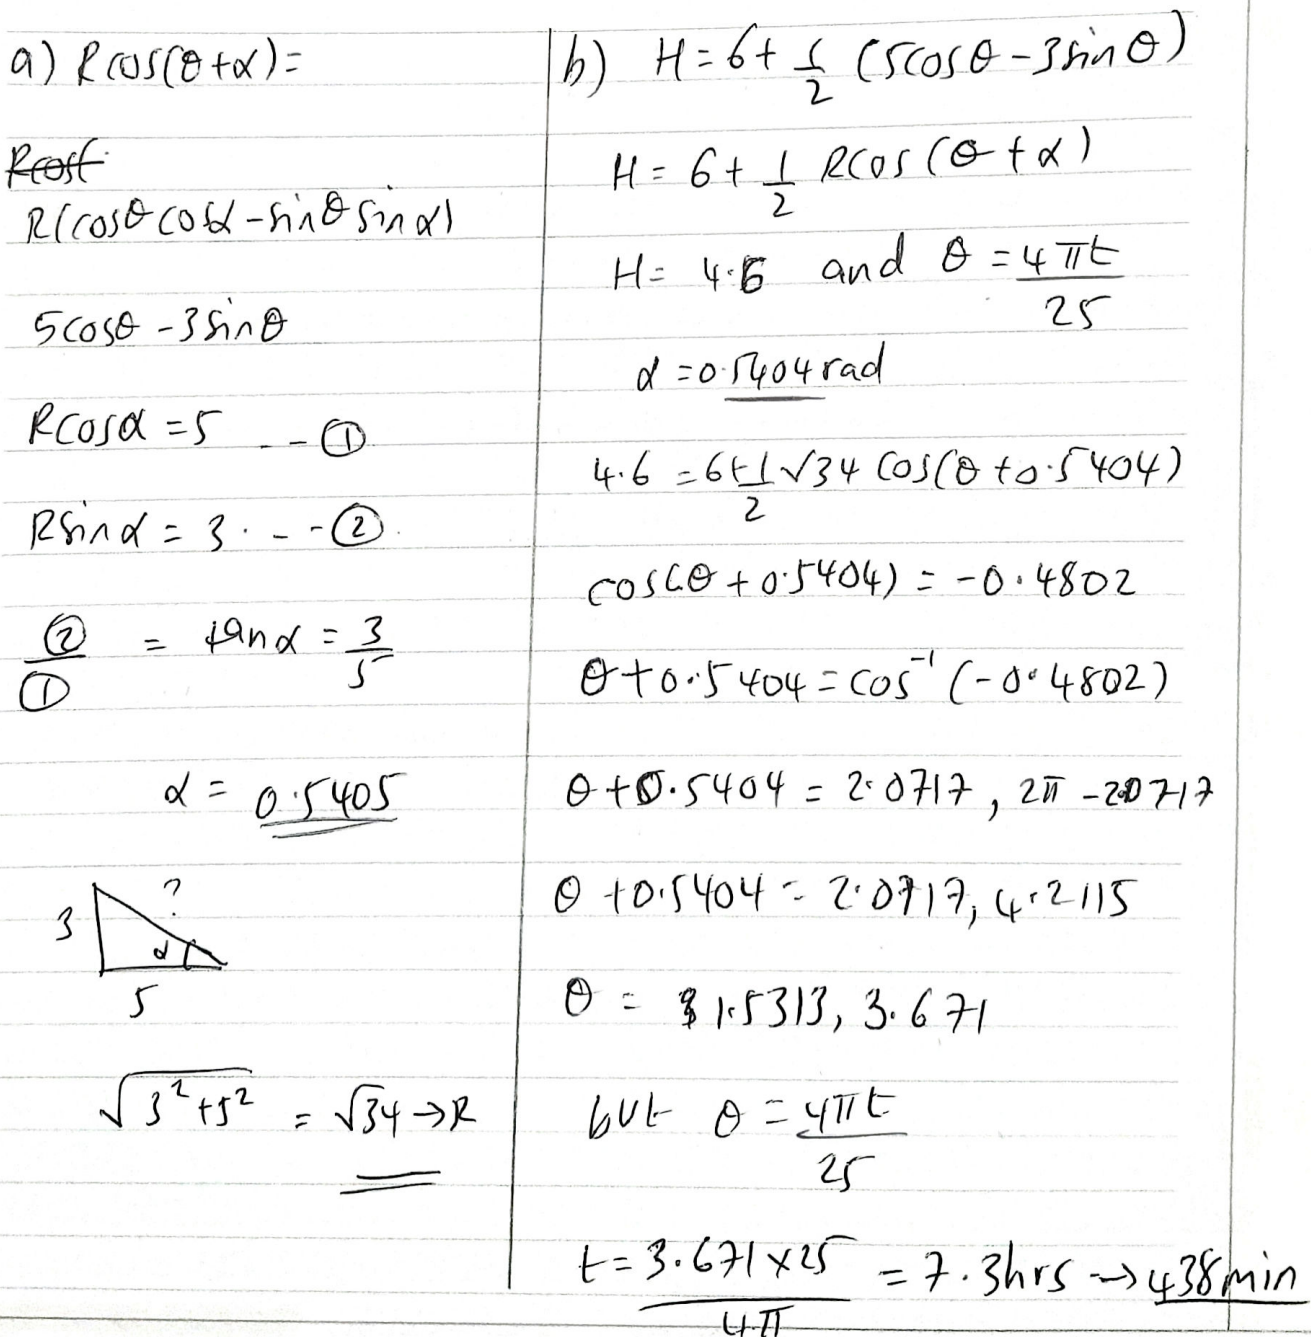 a) Rcos(θ+α)=
Rcos(
R(cosθcosα-sinθsinα)
5cosθ-3sinθ
Rcosα=5 --①
Rsinα=3 . --②.
②/① = tanα = 3/5
α = 0.5405
3 ? α
5
√3²+5² = √34→R
b) H=6+1/2 (5cosθ-3sinθ)
H=6+1/2 Rcos(θ+α)
H= 4.6 and θ=4πt/25
α=0.5404rad
4.6=6+1/2√34 cos(θ+0.5404)
cos(θ+0.5404) = -0.4802
θ+0.5404=cos⁻¹(-0.4802)
θ+0.5404=2.0717, 2π-2.0717
θ+0.5404=2.0717, 4.2115
θ= 1.5313, 3.671
but θ=4πt/25
t=3.671×25/4π =7.3hrs→438min